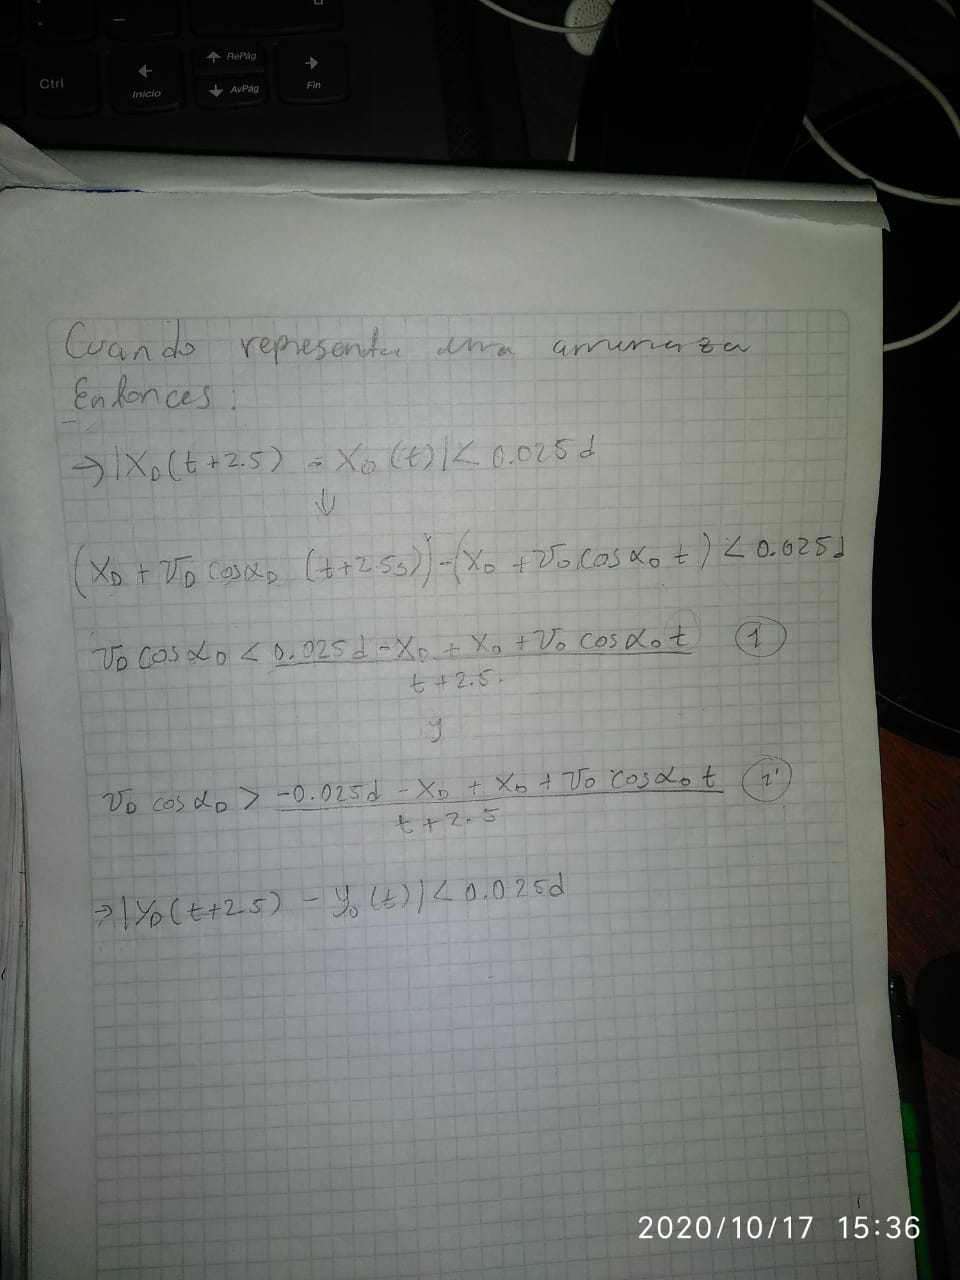 Ctrl
Inicio
RePág
AvPág
Fin
Cuando representa una amenaza
Entonces:
→ |X_D(t+2.5) - X_o(t)| < 0.025d
↓
(X_D + V_D cosα_D (t+2.5s)) - (X_o + V_o cosα_o t) < 0.025d
V_D cosα_D < (0.025d - X_D + X_o + V_o cosα_o t) / (t+2.5) ①
y
V_D cosα_D > (-0.025d - X_D + X_o + V_o cosα_o t) / (t+2.5) ①'
→ |Y_D(t+2.5) - Y_o(t)| < 0.025d
2020/10/17 15:36